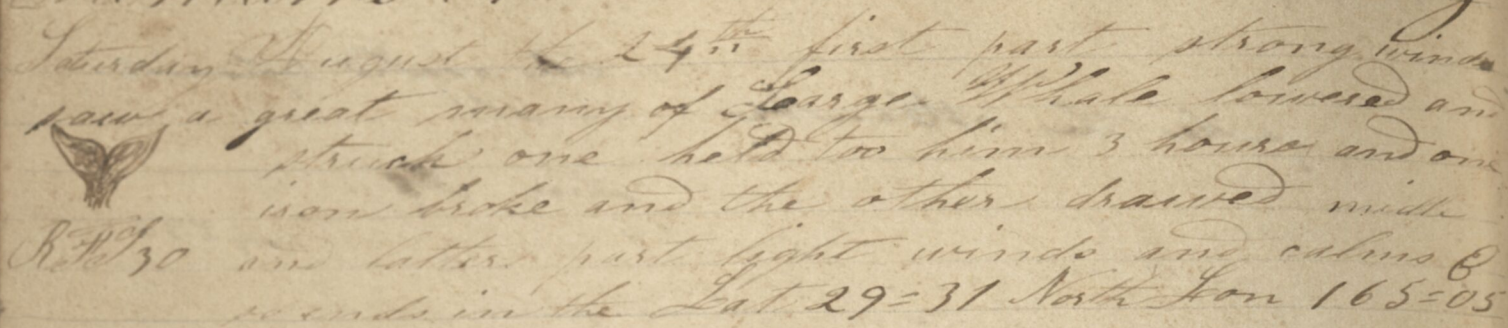 Saturday August the 24th first part strong winds
saw a great many of Learge Whale lowered and
struck one held too him 3 hours and one
iron broke and the other drawed midle
and latter part light winds and calms &
so ends in the Lat 29=31 North Lon 165=05